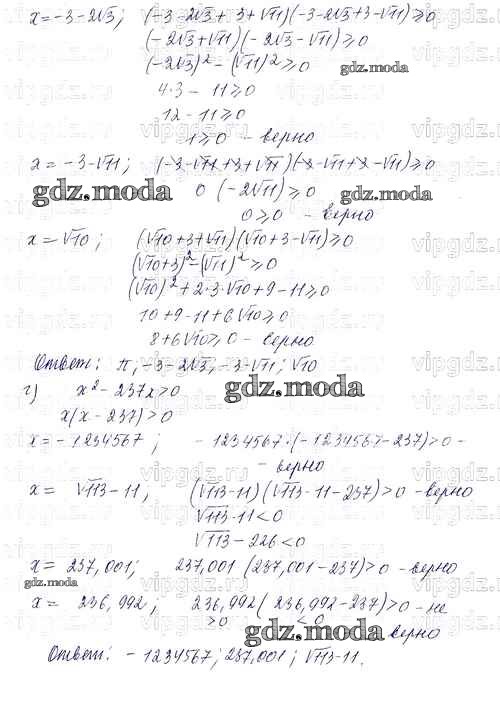 x = -3 - 2√3; (-3 - 2√3 + 3 + √11)(-3 - 2√3 + 3 - √11) ≥ 0
(-2√3 + √11)(-2√3 - √11) ≥ 0
(-2√3)² - (√11)² ≥ 0
gdz.moda
4·3 - 11 ≥ 0
12 - 11 ≥ 0
1 ≥ 0 - верно
x = -3 - √11; (-3 - √11 + 3 + √11)(-3 - √11 + 3 - √11) ≥ 0
gdz.moda 0 (-2√11) ≥ 0 gdz.moda
0 ≥ 0 - верно
x = √10; (√10 + 3 + √11)(√10 + 3 - √11) ≥ 0
(√10 + 3)² - (√11)² ≥ 0
(√10)² + 2·3·√10 + 9 - 11 ≥ 0
10 + 9 - 11 + 6√10 ≥ 0
8 + 6√10 ≥ 0 - верно
Ответ: π; -3 - 2√3; -3 - √11; √10
г) x² - 237x > 0 gdz.moda
x(x - 237) > 0
x = -1234567; -1234567·(-1234567 - 237) > 0 -
- верно
x = √113 - 11; (√113 - 11)(√113 - 11 - 237) > 0 - верно
√113 - 11 < 0
√113 - 226 < 0
x = 237,001; 237,001 (237,001 - 237) > 0 - верно
gdz.moda
x = 236,992; 236,992 (236,992 - 237) > 0 - не
> 0 < 0
gdz.moda верно
Ответ: -1234567; 237,001; √113 - 11.
vipgdz.ru